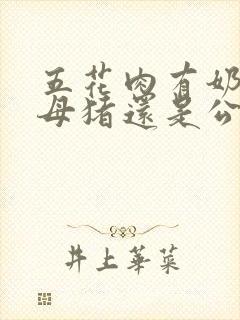 五花肉有奶
母猪還是公
井上華菜